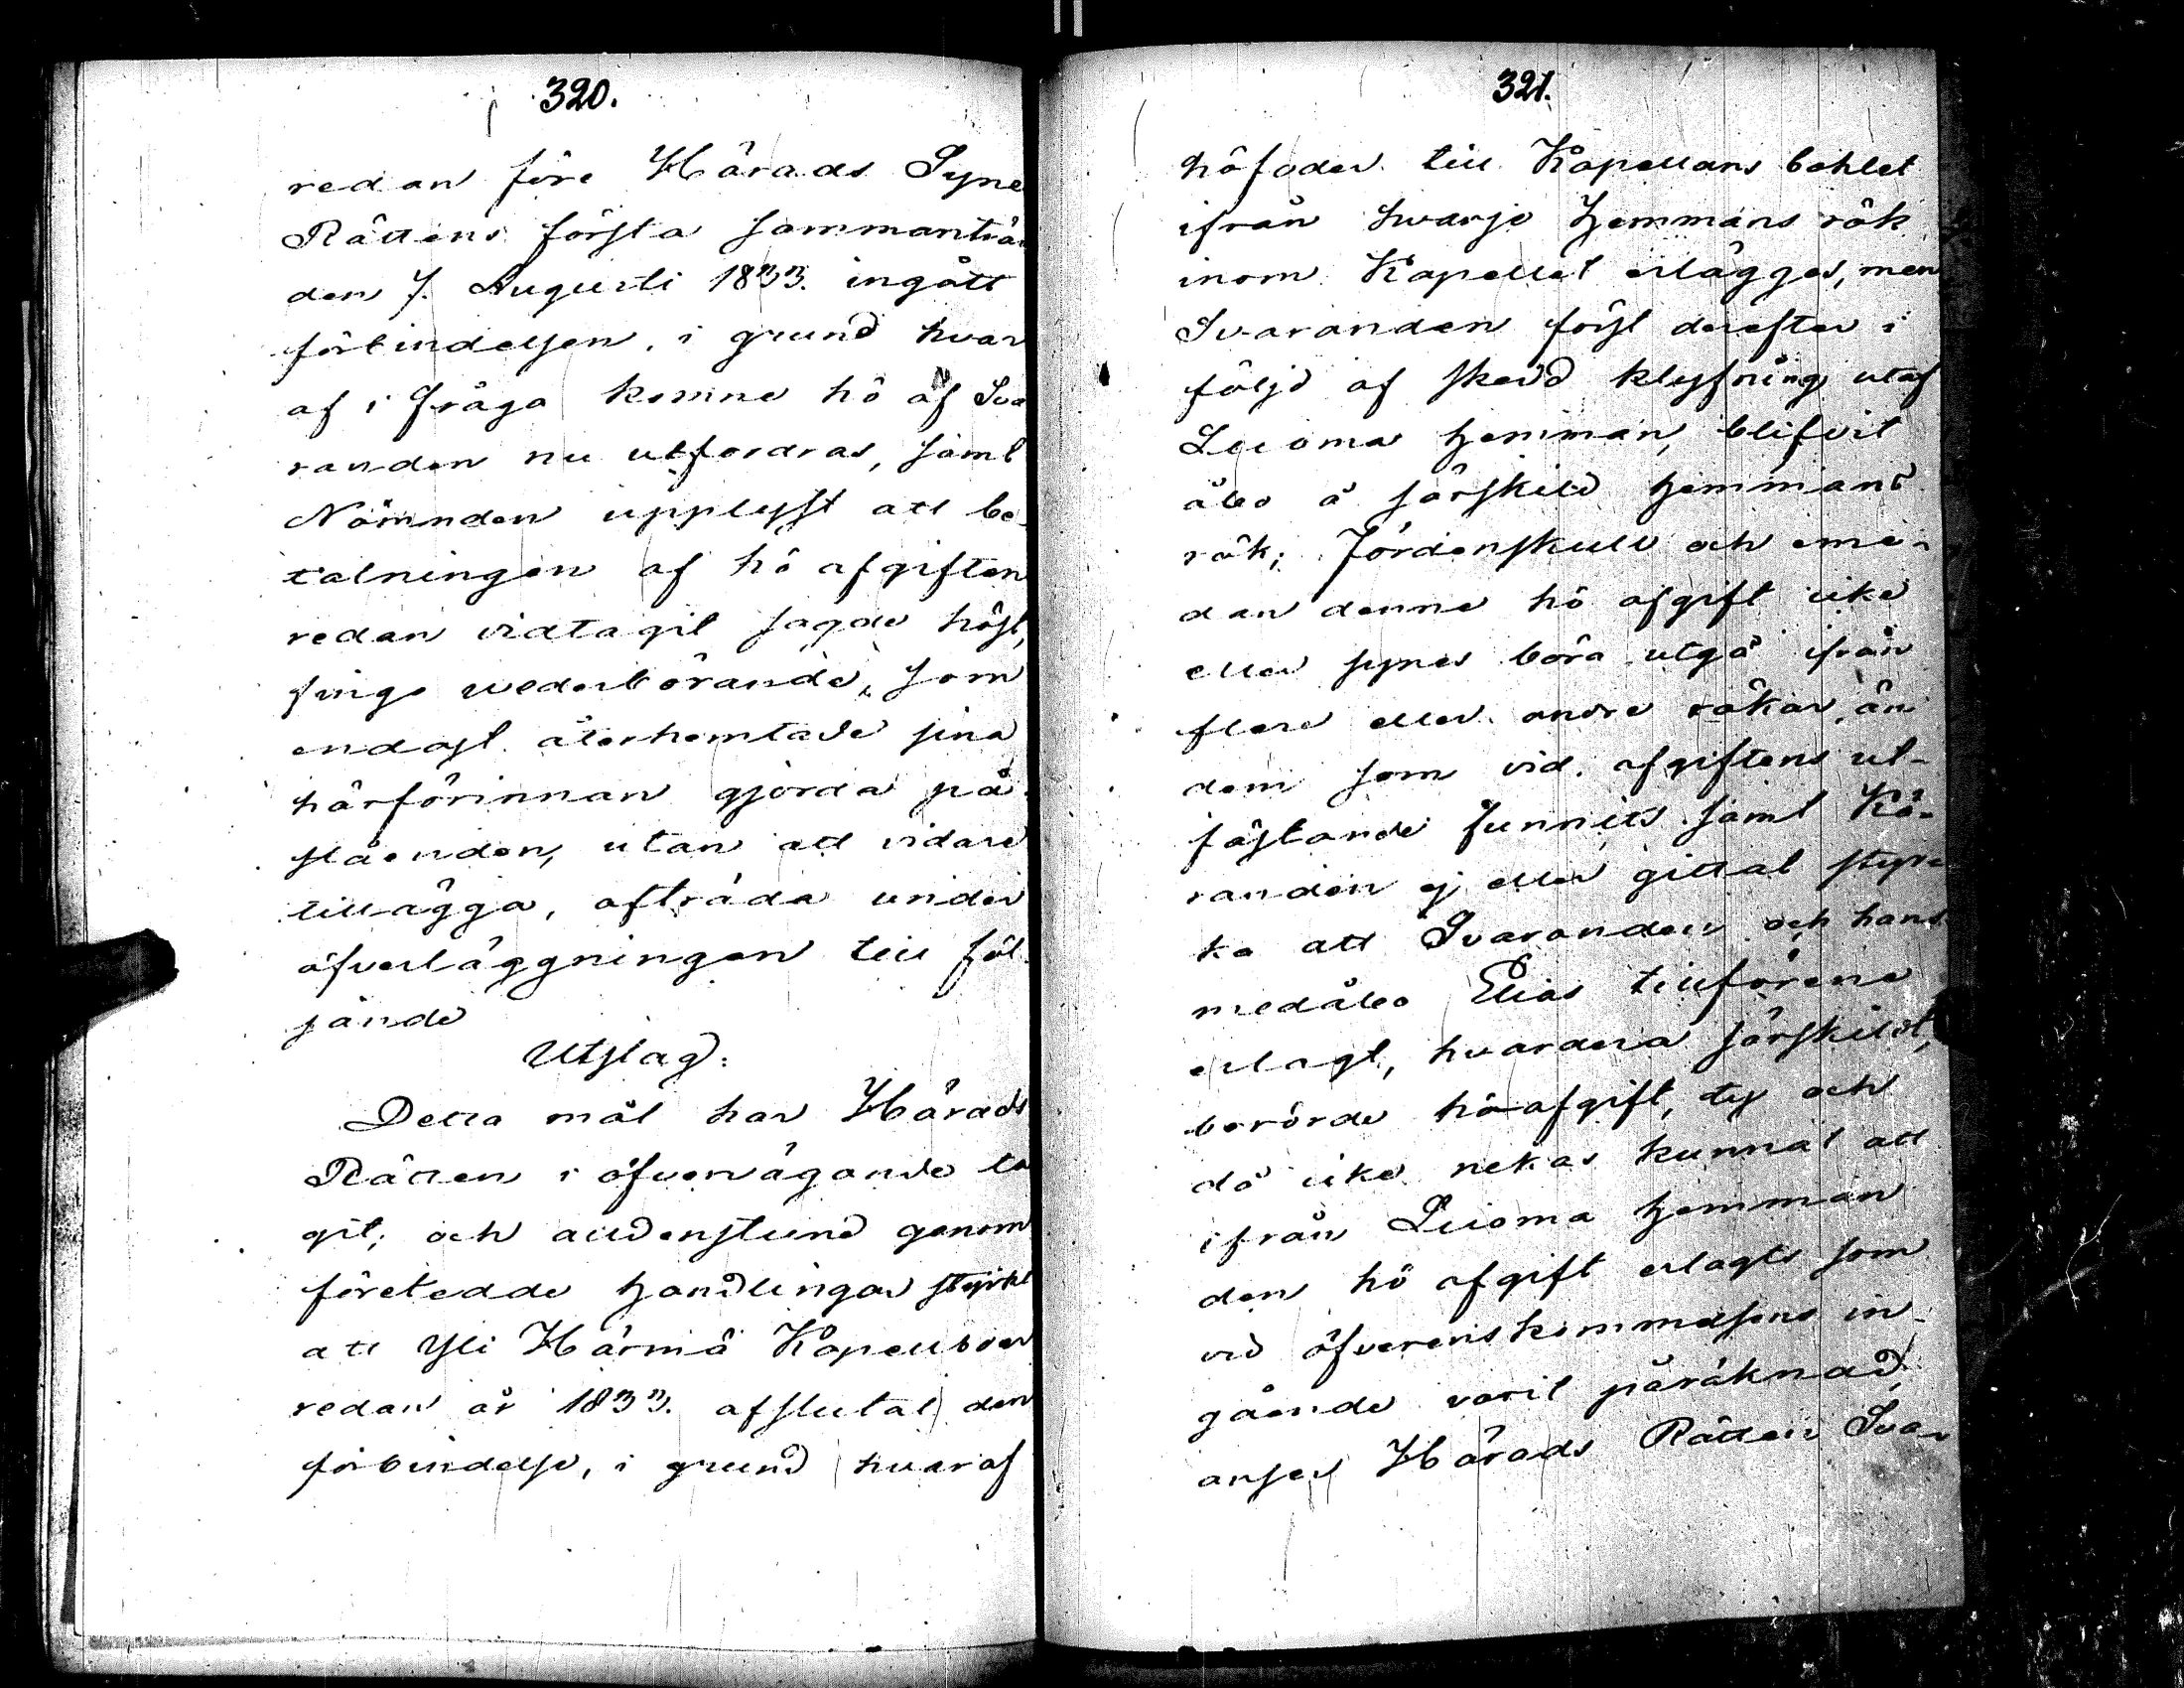 320.
redan före Härads Syne
Rättens första sammanträ
den 7. Augusti 1833. ingått
förbindelsen, i grund hvar
af i fråga komne hö af Sva
randen nu utfordras, samt
Nämnden upplyst att be-
talningen af hö afgiften
redan vidtagit sagde höst,
finge wederbörande, som
endast återhemtade sina
härförinnan gjorda på-
ståenden, utan att vidare
tillägga, afträda under
öfverläggningen till föl-
jande
Utslag:
Detta mål har Härads
Rätten i öfvervägande ta
git; och alldenstund genom
företedde handlingar styrkt
att Yli Härmä Kapellboer
redan år 1833. afslutat den
förbindelse, i grund hvaraf
321.
höfoder till Kapellans bohlet
ifrån hvarje Hemmans rök
inom Kapellet erlägges, men
Svaranden först derefter i
följd af skedd klyfning utaf
Luoma hemman, blifvit
åbo å särskild hemmans
rök; Fördenskull och eme-
dan denne hö afgift icke
eller synes böra utgå ifrån
flere eller andre rökar, än
dem som vid afgiftens ut-
fästande funnits samt Kä-
randen ej eller gittat styr-
ka att Svaranden och hans
medåbo Elias tillförene
erlagt, hvardera särskildt,
berörde hö afgift, ty och
då icke nekas kunnat att
ifrån Luoma hemman
den hö afgift erlagts som
vid öfverenskommelsens in-
gående varit påräknad,
anser Härads Rätten Sva-